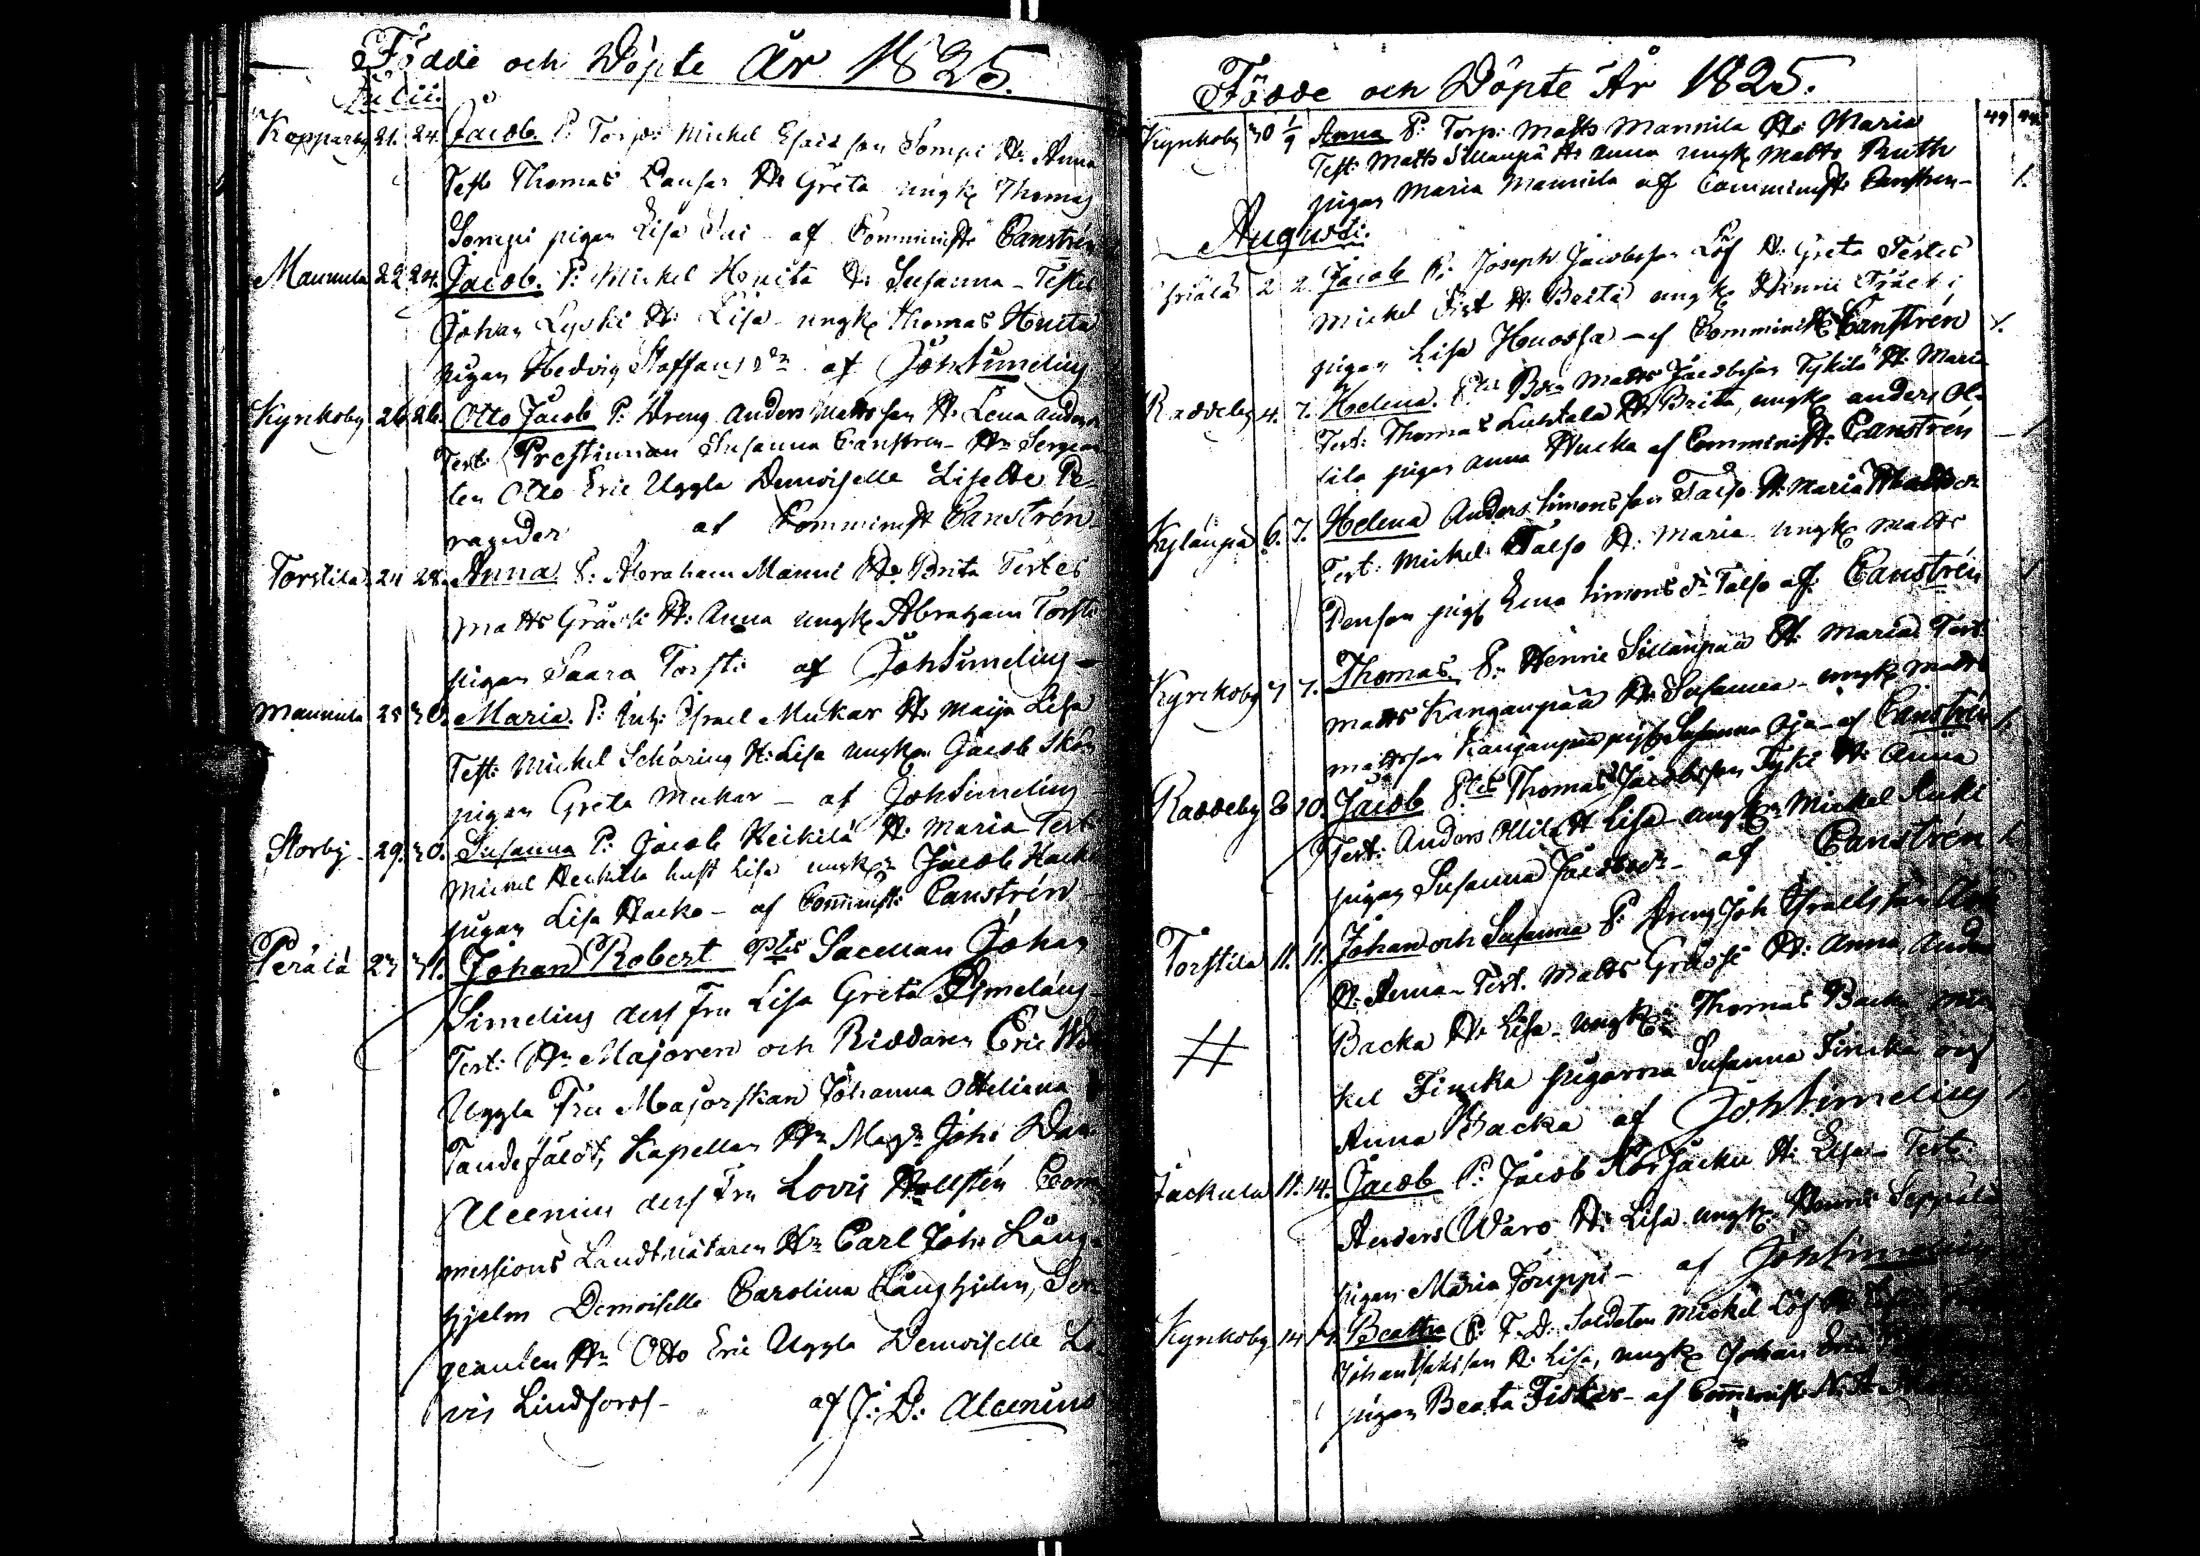 Födde och Döpte År 1825.
Julii.
Kopparby 21. 24. Jacob. P: Torp: Mickel Esaisson Sompi H: Anna
Test: Thomas Lansar H: Greta ungk: Thomas
Sompi pigan Lisa af Comminist: Canstrén
Mannula 22 24. Jacob. P: Mickel Honita H: Susanna - Testes
Johan Lyski H: Lisa - ungk: Thomas Honita
pigan Hedvig Staffansdr af Joh Simelius
Kyrkoby 26 26. Otto Jacob P: Dreng Anders Mattsson H: Lena Anders
Test: Prestinnan Susanna Canstren - Hr Sergean
ten Otto Eric Uggla Demoiselle Lisette Pe-
rander af Comminist Canstrén
Torstila 24 28. Anna. P: Abraham Manni H: Brita Testes
Matts Gråssi H: Anna ungk: Abraham Torsti
pigan Saara Torsti af Joh Simelius -
Mannula 25 30. Maria. P: Inh: Israel Muckar H: Maija Lisa
Test: Mickel Schöring H: Lisa ungk: Jacob Skön
pigan Greta Muckar - af Joh Simelius
Storby - 29. 30. Susanna P: Jacob Heikilä H: Maria Test:
Mickel Heikilä hust Lisa ungk: Jacob Hacko
pigan Lisa Hacko - af Comminist: Canstrén
Perälä 23 31. Johan Robert Ptes Sacellan Johan
Simelius dess Fru Lisa Greta Asmelæus
Test: Hr Majoren och Riddaren Eric Wil
Uggla Fru Majorskan Johanna Ottiliana
Tandefäldt, Kapellan Hr Magr Joh: Dan
Alcenius dess Fru Lovis Hollstén Com
missions Landtmätaren Hr Carl Joh: Lång-
hjelm Demoiselle Carolina Långhjelm, Ser-
geanten Hr Otto Eric Uggla Demoiselle Lo-
vis Lindfors - af J: D: Alcenius
Födde och Döpte År 1825.
Kyrkoby 30 1/9 Anna P: Torp: Matts Mannila H: Maria
Test: Matts Sillanpä H: Anna ungk: Matts Ruth
pigan Maria Mannila af Comminist: Canstren - 1.
Augusti.
2 2. Jacob P: Joseph Jacobsson Löf H: Greta Testes
Mickel H: Brita ungk: Henric
pigan Lisa - af Comminist: Canstrén 1.
Raddeby 4. 7. Helena. Ptes Bon: Matts Jacobsson Tykilä H: Maria
Test: Thomas Luhtala H: Brita, ungk: Anders Ol-
lila pigan Anna Hucka af Comminist: Canstrén - 1
Kyläupä 6. 7. Helena Anders Simonsson Talso H: Maria Mattsdr
Test: Mickel Talso H: Maria ungk: Matts
pig: Lena Simonsdr Talso af: Canstrén 1
Kyrkoby 7 7. Thomas. P: Henric Sillanpää H: Maria Test:
Matts Kangaspää H: Susanna - ungk: Matts
Mattsson Kangaspää pig: Susanna Oja - af Canstrén 1.
Raddeby 8 10. Jacob Ptes Thomas Jacobsson Tyki H: Anna
Test: Anders Ollila H: Lisa - ungk: Mickel
pigan Susanna Jacobsdr - af Canstrén 1.
Torstila 11. 11. Johan och Susanna P: Dreng Joh Israelsson
H: Anna - Test. Matts Gråssi H: Anna, Anders
Backa H: Lisa - ungk: Thomas Backa Mic
kel Fincka pigorna Susanna Fincka och
Anna Backa af Joh Simelius 1.
Jackula 11. 14. Jacob P: Jacob H: Lisa - Test:
Anders Waro H: Lisa ungk: Henric Seppälä
pigan Maria Jouppi - af Joh Simelius
Kyrkoby 14 14. Beatha P: F.D. Soldaten Mickel Löf H:
Johan Isaksson H: Lisa, ungk: Johan
pigan Beata Fiskar - af Comminist: N. A.